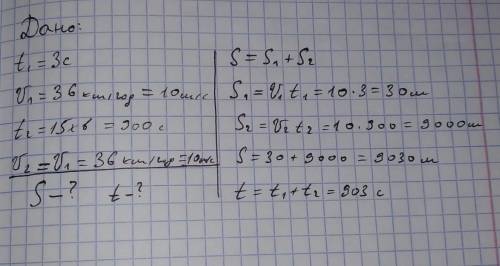 Дано:
t₁ = 3с
V₁ = 36 км/год = 10м/с
t₂ = 15хв = 900 с
V₂ = V₁ = 36 км/год = 10м/с
S - ? t - ?
S = S₁ + S₂
S₁ = V₁ t₁ = 10 · 3 = 30м
S₂ = V₂ t₂ = 10 · 900 = 9000м
S = 30 + 9000 = 9030м
t = t₁ + t₂ = 903 с